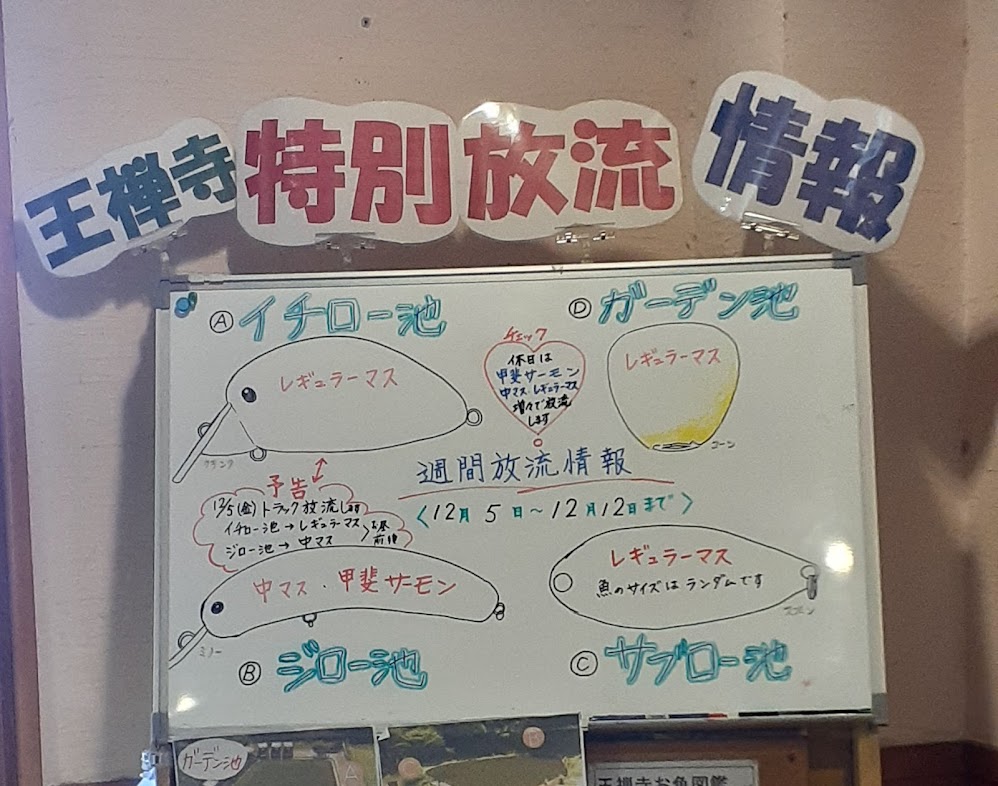 王禅寺 特別放流 情報
Ⓐ イチロー池
レギュラーマス
クランク
チェック
休日は
甲斐サーモン
中マス・レギュラーマス
増々で放流
します
Ⓓ ガーデン池
レギュラーマス
コーン
週間放流情報
〈12月5日〜12月12日まで〉
予告
12/5(金)トラック放流します
イチロー池→レギュラーマス
ジロー池→中マス
お昼
前後
中マス・甲斐サーモン
ミノー
Ⓑ ジロー池
レギュラーマス
魚のサイズはランダムです
スプーン
Ⓒ サブロー池
ガーデン池
A
B
王禅寺お魚図鑑